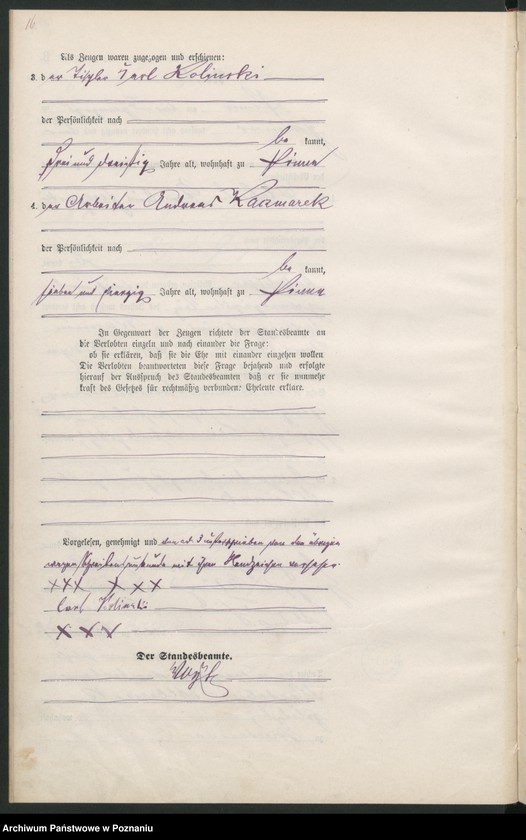 16.
Als Zeugen waren zugezogen und erschienen:
3. der Tischler Carl Kolinski
der Persönlichkeit nach
be kannt,
drei und dreißig Jahre alt, wohnhaft zu Pinne
4. der Arbeiter Andreas Kaczmarek
der Persönlichkeit nach
be kannt,
sieben und vierzig Jahre alt, wohnhaft zu Pinne
In Gegenwart der Zeugen richtete der Standesbeamte an
die Verlobten einzeln und nach einander die Frage:
ob sie erklären, daß sie die Ehe mit einander eingehen wollen.
Die Verlobten beantworteten diese Frage bejahend und erfolgte
hierauf der Ausspruch des Standesbeamten, daß er sie nunmehr
kraft des Gesetzes für rechtmäßig verbundene Eheleute erkläre.
Vorgelesen, genehmigt und von ad 3 unterschrieben von den übrigen
wegen Schreibensunkunde mit ihren Handzeichen versehen.
XXX XXX
Carl Kolinski
XXX
Der Standesbeamte.
Archiwum Państwowe w Poznaniu